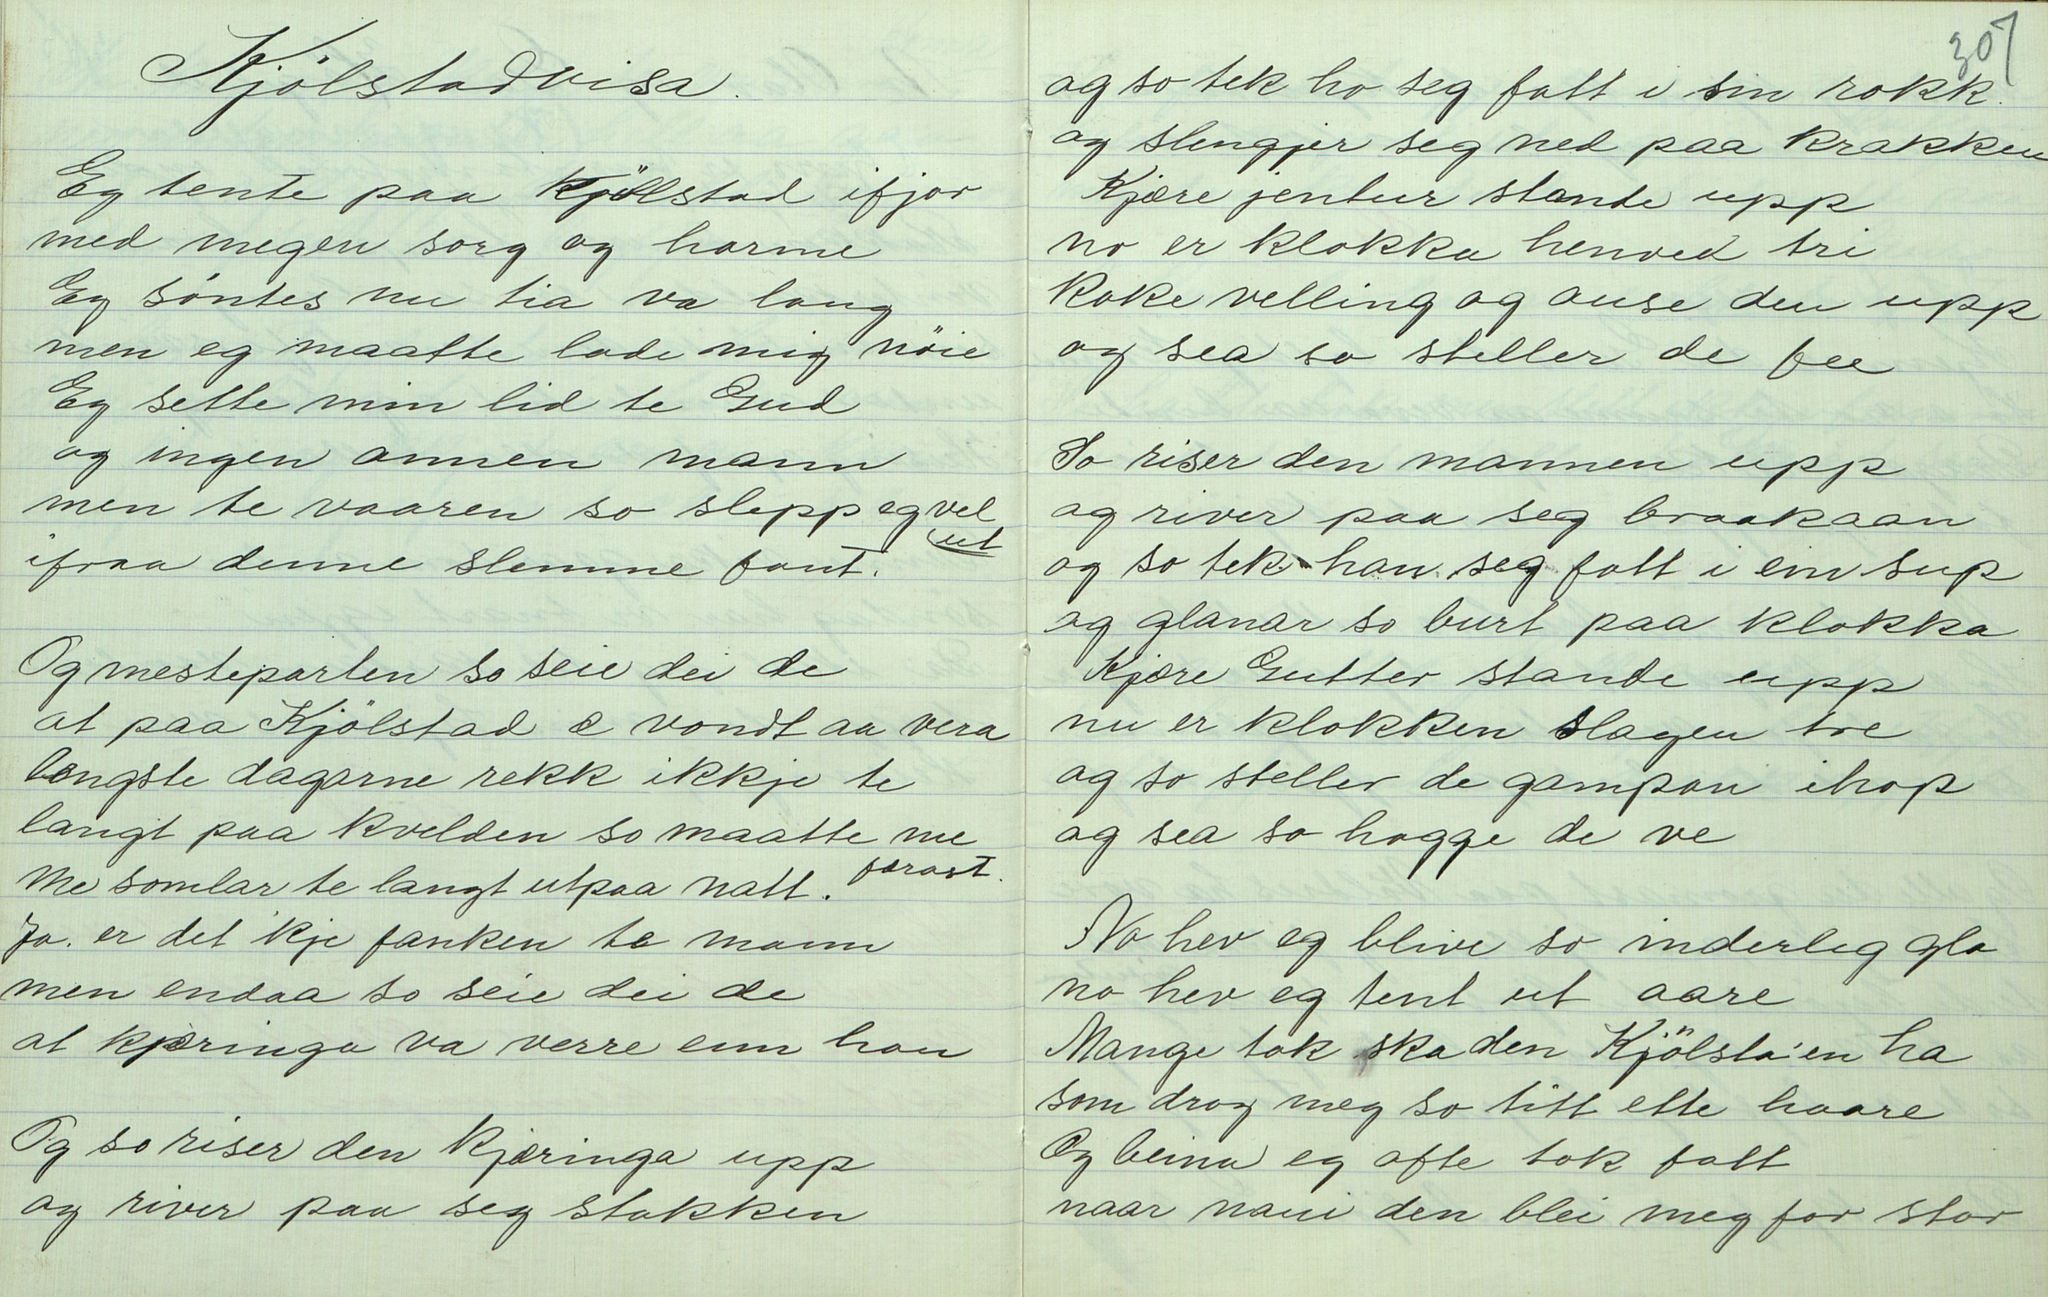 Kjölstadvisa.
Eg tente paa Kjölstad ifjor
med megen sorg og harme
Eg söntes nu tia va lang
men eg maatte lade mig nöie
Eg sette min lid te Gud
og ingen annen mann
men te vaaren so slepp eg vel
ut
ifraa denne slemme fant.
Og mesteparten so seie dei de
at paa Kjölstad e vondt aa vera
længste dagarne rekk ikkje te
langt paa kvelden so maatte me
færast.
Me somlar te langt utpaa natt.
Ja. er det 'kje fanken te mann
men endaa so seie dei de
at kjæringa va verre enn han
Og so riser den kjæringa upp
og river paa seg stakken
307
og so tek ho seg fatt i sin rokk.
og slengjer seg ned paa krakken
Kjære jentur stande upp
no er klokka henved tri
Koke velling og ause den upp
og sea so steller de fee
So riser den mannen upp
og river paa seg braakaan
og so tek han seg fatt i ein sup
og glanar so burt paa klokka
Kjære Gutter stande upp
nu er klokken slagen tre
og so steller de gampan ihop
og sea so hogge de ve
No hev eg blive so inderleg gla
no hev eg tent ut aare
Mange tak ska den Kjölsta'en ha
som drog meg so titt ette haare
Og beina eg ofte tok fatt
naar naui den blei meg for stor